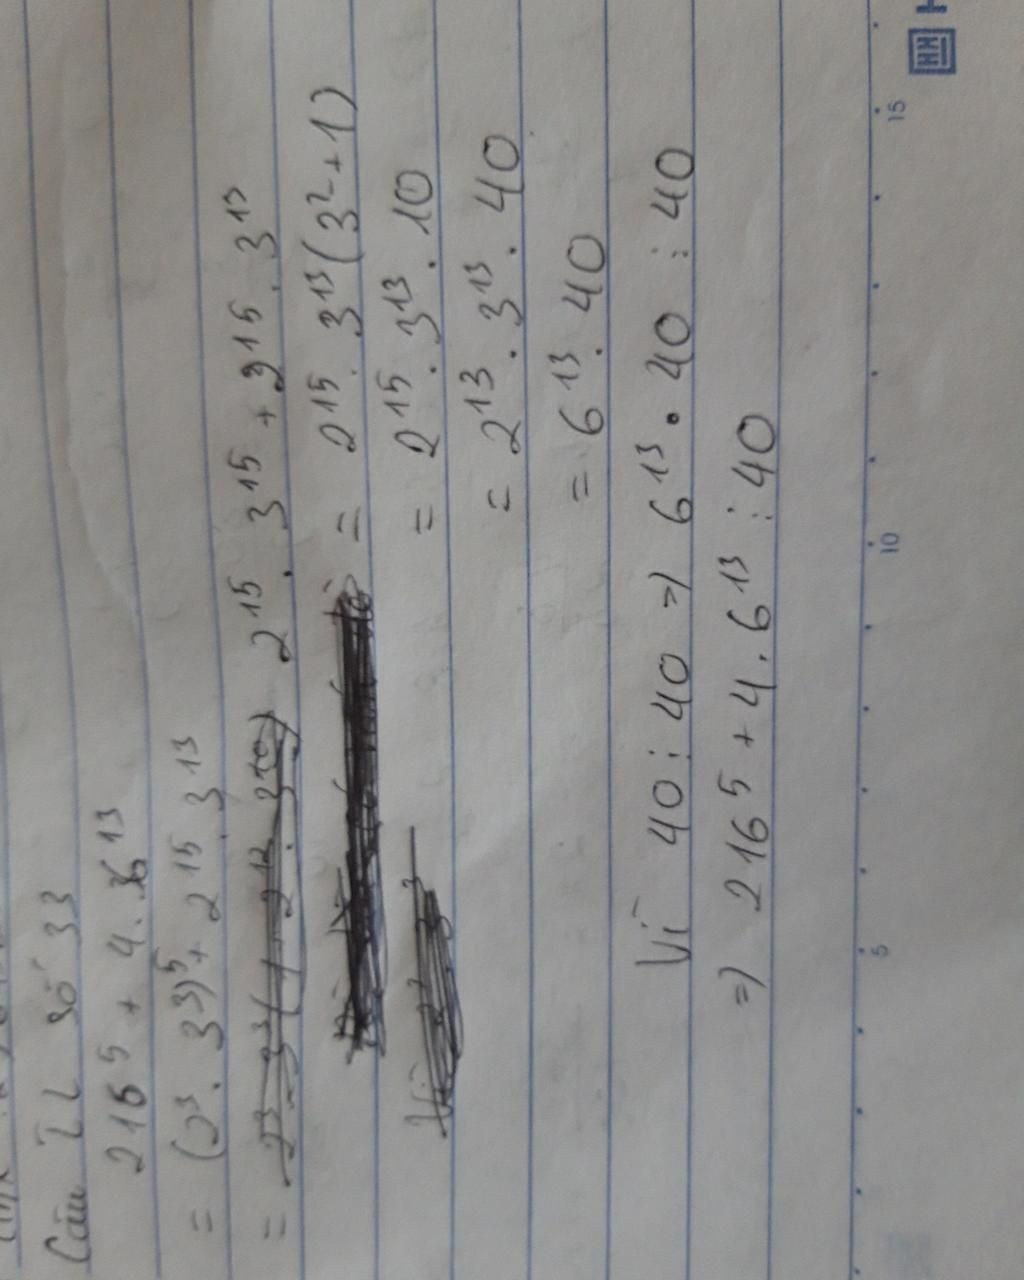 Câu 22 số 33
216⁵ + 4 . 6¹³
= (2³ . 3³)⁵ + 2¹⁵ . 3¹³
= 2¹⁵ . 3¹⁵ + 2¹⁵ . 3¹³
= 2¹⁵ . 3¹³ (3² + 1)
= 2¹⁵ . 3¹³ . 10
= 2¹³ . 3¹³ . 40
= 6¹³ . 40
Vì 40 ⋮ 40 => 6¹³ . 40 ⋮ 40
=> 216⁵ + 4 . 6¹³ ⋮ 40
5 10 15
HH H